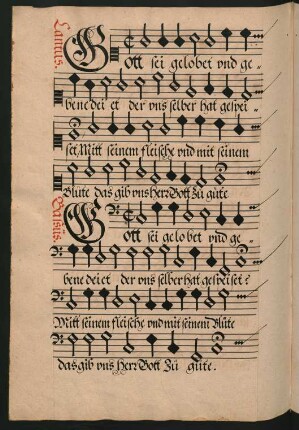 Cantus.
Gott sei gelobet vnd ge-
bene deiet der vns selber hat gespei-
set, Mitt seinem fleische vnd mit seinem
Blute das gib vns herr Gott zu gute
Bassus.
Gott sei gelobet vnd ge-
bene deiet der vns selber hat gespeiset:
Mitt seinem fleische vnd mit seinem Blute
das gib vns herr Gott Zu gute.